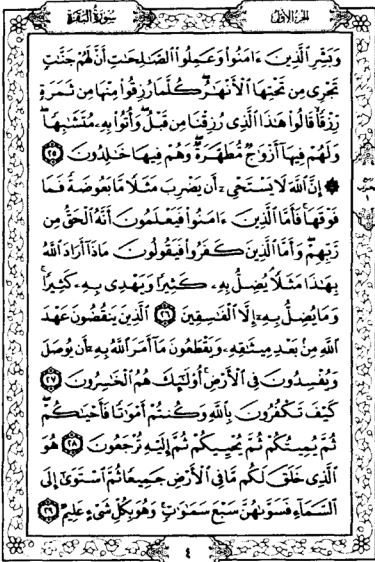 سورة البقرة
الجزء الأول
وَبَشِّرِ الَّذِينَ ءَامَنُوا وَعَمِلُوا الصَّٰلِحَٰتِ أَنَّ لَهُمْ جَنَّٰتٍ
تَجْرِى مِن تَحْتِهَا الْأَنْهَٰرُ كُلَّمَا رُزِقُوا مِنْهَا مِن ثَمَرَةٍ
رِّزْقًا قَالُوا هَٰذَا الَّذِى رُزِقْنَا مِن قَبْلُ وَأُتُوا بِهِ مُتَشَٰبِهًا
وَلَهُمْ فِيهَا أَزْوَٰجٌ مُّطَهَّرَةٌ وَهُمْ فِيهَا خَٰلِدُونَ ٢٥
۞ إِنَّ اللَّهَ لَا يَسْتَحْىِۦ أَن يَضْرِبَ مَثَلًا مَّا بَعُوضَةً فَمَا
فَوْقَهَا فَأَمَّا الَّذِينَ ءَامَنُوا فَيَعْلَمُونَ أَنَّهُ الْحَقُّ مِن
رَّبِّهِمْ وَأَمَّا الَّذِينَ كَفَرُوا فَيَقُولُونَ مَاذَا أَرَادَ اللَّهُ
بِهَٰذَا مَثَلًا يُضِلُّ بِهِۦ كَثِيرًا وَيَهْدِى بِهِۦ كَثِيرًا
وَمَا يُضِلُّ بِهِۦ إِلَّا الْفَٰسِقِينَ ٢٦ الَّذِينَ يَنقُضُونَ عَهْدَ
اللَّهِ مِن بَعْدِ مِيثَٰقِهِۦ وَيَقْطَعُونَ مَا أَمَرَ اللَّهُ بِهِۦ أَن يُوصَلَ
وَيُفْسِدُونَ فِى الْأَرْضِ أُولَٰئِكَ هُمُ الْخَٰسِرُونَ ٢٧
كَيْفَ تَكْفُرُونَ بِاللَّهِ وَكُنتُمْ أَمْوَٰتًا فَأَحْيَٰكُمْ
ثُمَّ يُمِيتُكُمْ ثُمَّ يُحْيِيكُمْ ثُمَّ إِلَيْهِ تُرْجَعُونَ ٢٨ هُوَ
الَّذِى خَلَقَ لَكُم مَّا فِى الْأَرْضِ جَمِيعًا ثُمَّ اسْتَوَىٰ إِلَى
السَّمَاءِ فَسَوَّىٰهُنَّ سَبْعَ سَمَٰوَٰتٍ وَهُوَ بِكُلِّ شَىْءٍ عَلِيمٌ ٢٩
٤